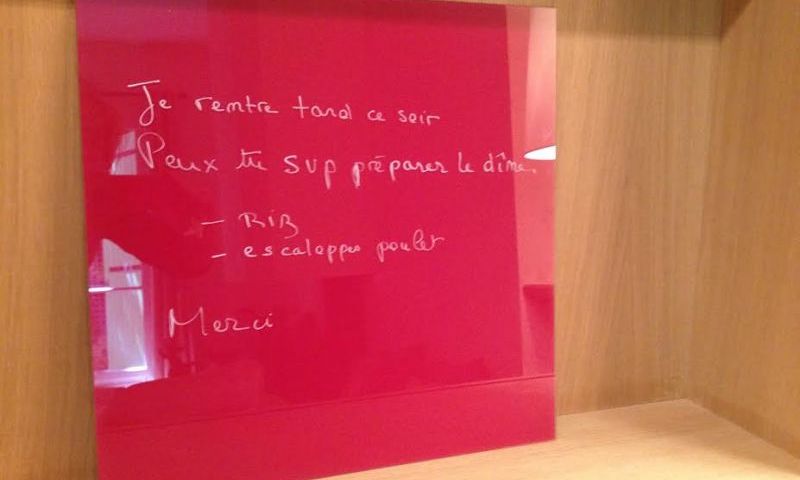 Je rentre tard ce soir
Peux tu SVP préparer le dîner
- RIZ
- escaloppes poulet
Merci